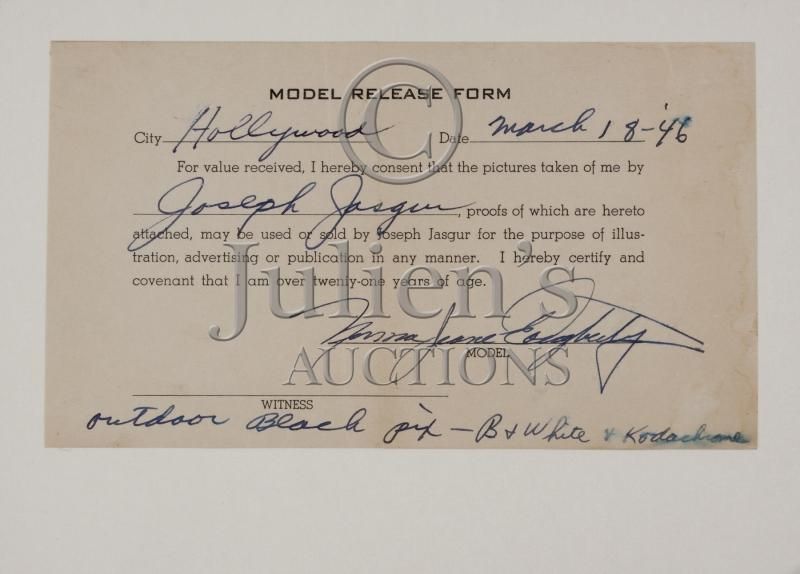 MODEL RELEASE FORM
City Hollywood Date March 18-'46
For value received, I hereby consent that the pictures taken of me by
Joseph Jasgur, proofs of which are hereto
attached, may be used or sold by Joseph Jasgur for the purpose of illus-
tration, advertising or publication in any manner. I hereby certify and
covenant that I am over twenty-one years of age.
Norma Jeane Dougherty
MODEL
WITNESS
outdoor Beach pix - B & White & Kodachrome
©
Julien's
AUCTIONS